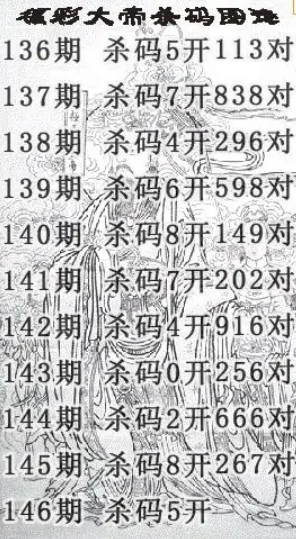 彩大帝杀码图
136期 杀码5开113对
137期 杀码7开838对
138期 杀码4开296对
139期 杀码6开598对
140期 杀码8开149对
141期 杀码7开202对
142期 杀码4开916对
143期 杀码0开256对
144期 杀码2开666对
145期 杀码8开267对
146期 杀码5开